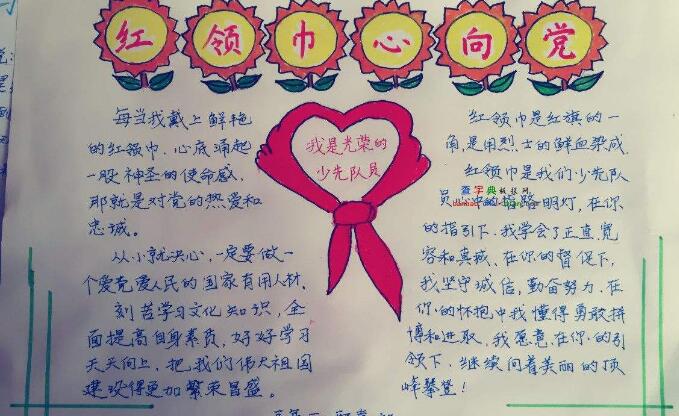 红领巾心向党
我是光荣的
少先队员
每当我戴上鲜艳
的红领巾、心底涌起
一股神圣的使命感,
那就是对党的热爱和
忠诚。
从小就决心,一定要做一
个爱党爱人民的国家有用人材,
刻苦学习文化知识,全
面提高自身素质,好好学习
天天向上,把我们伟大祖国
建设得更加繁荣昌盛。
红领巾是红旗的一
角是用烈士的鲜血染成
红领巾是我们少先队
员心中的指路明灯,在你
的指引下.我学会了正直.宽
容和真诚、在你的督促下,
我坚守诚信,勤奋努力.在
你.的怀抱中我懂得勇敢拼
搏和进取,我愿意.在你.的引
领下.继续向着美丽的顶
峰攀登!
查字典